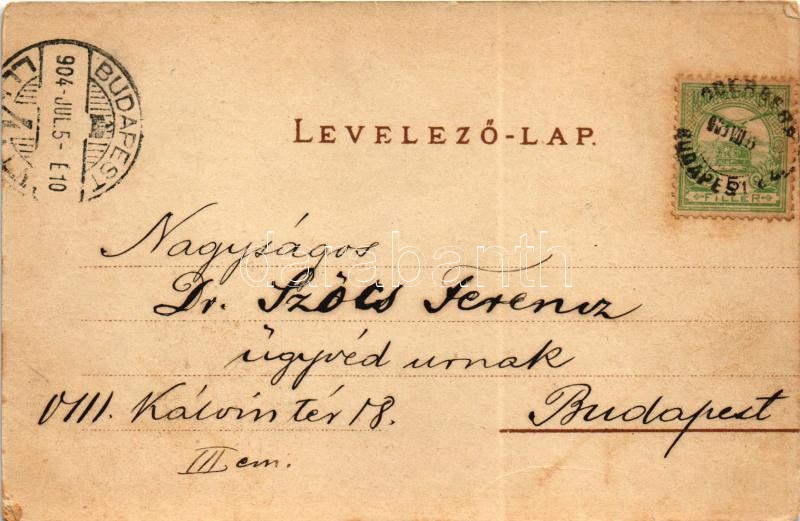 BUDAPEST
904-JUL.5-E10
LEVELEZŐ-LAP.
BUDAPEST
FILLER
Nagyságos
darabanth
Dr. Szőcs Ferencz
ügyvéd urnak
VIII. Kálvin tér 18. Budapest
III em.